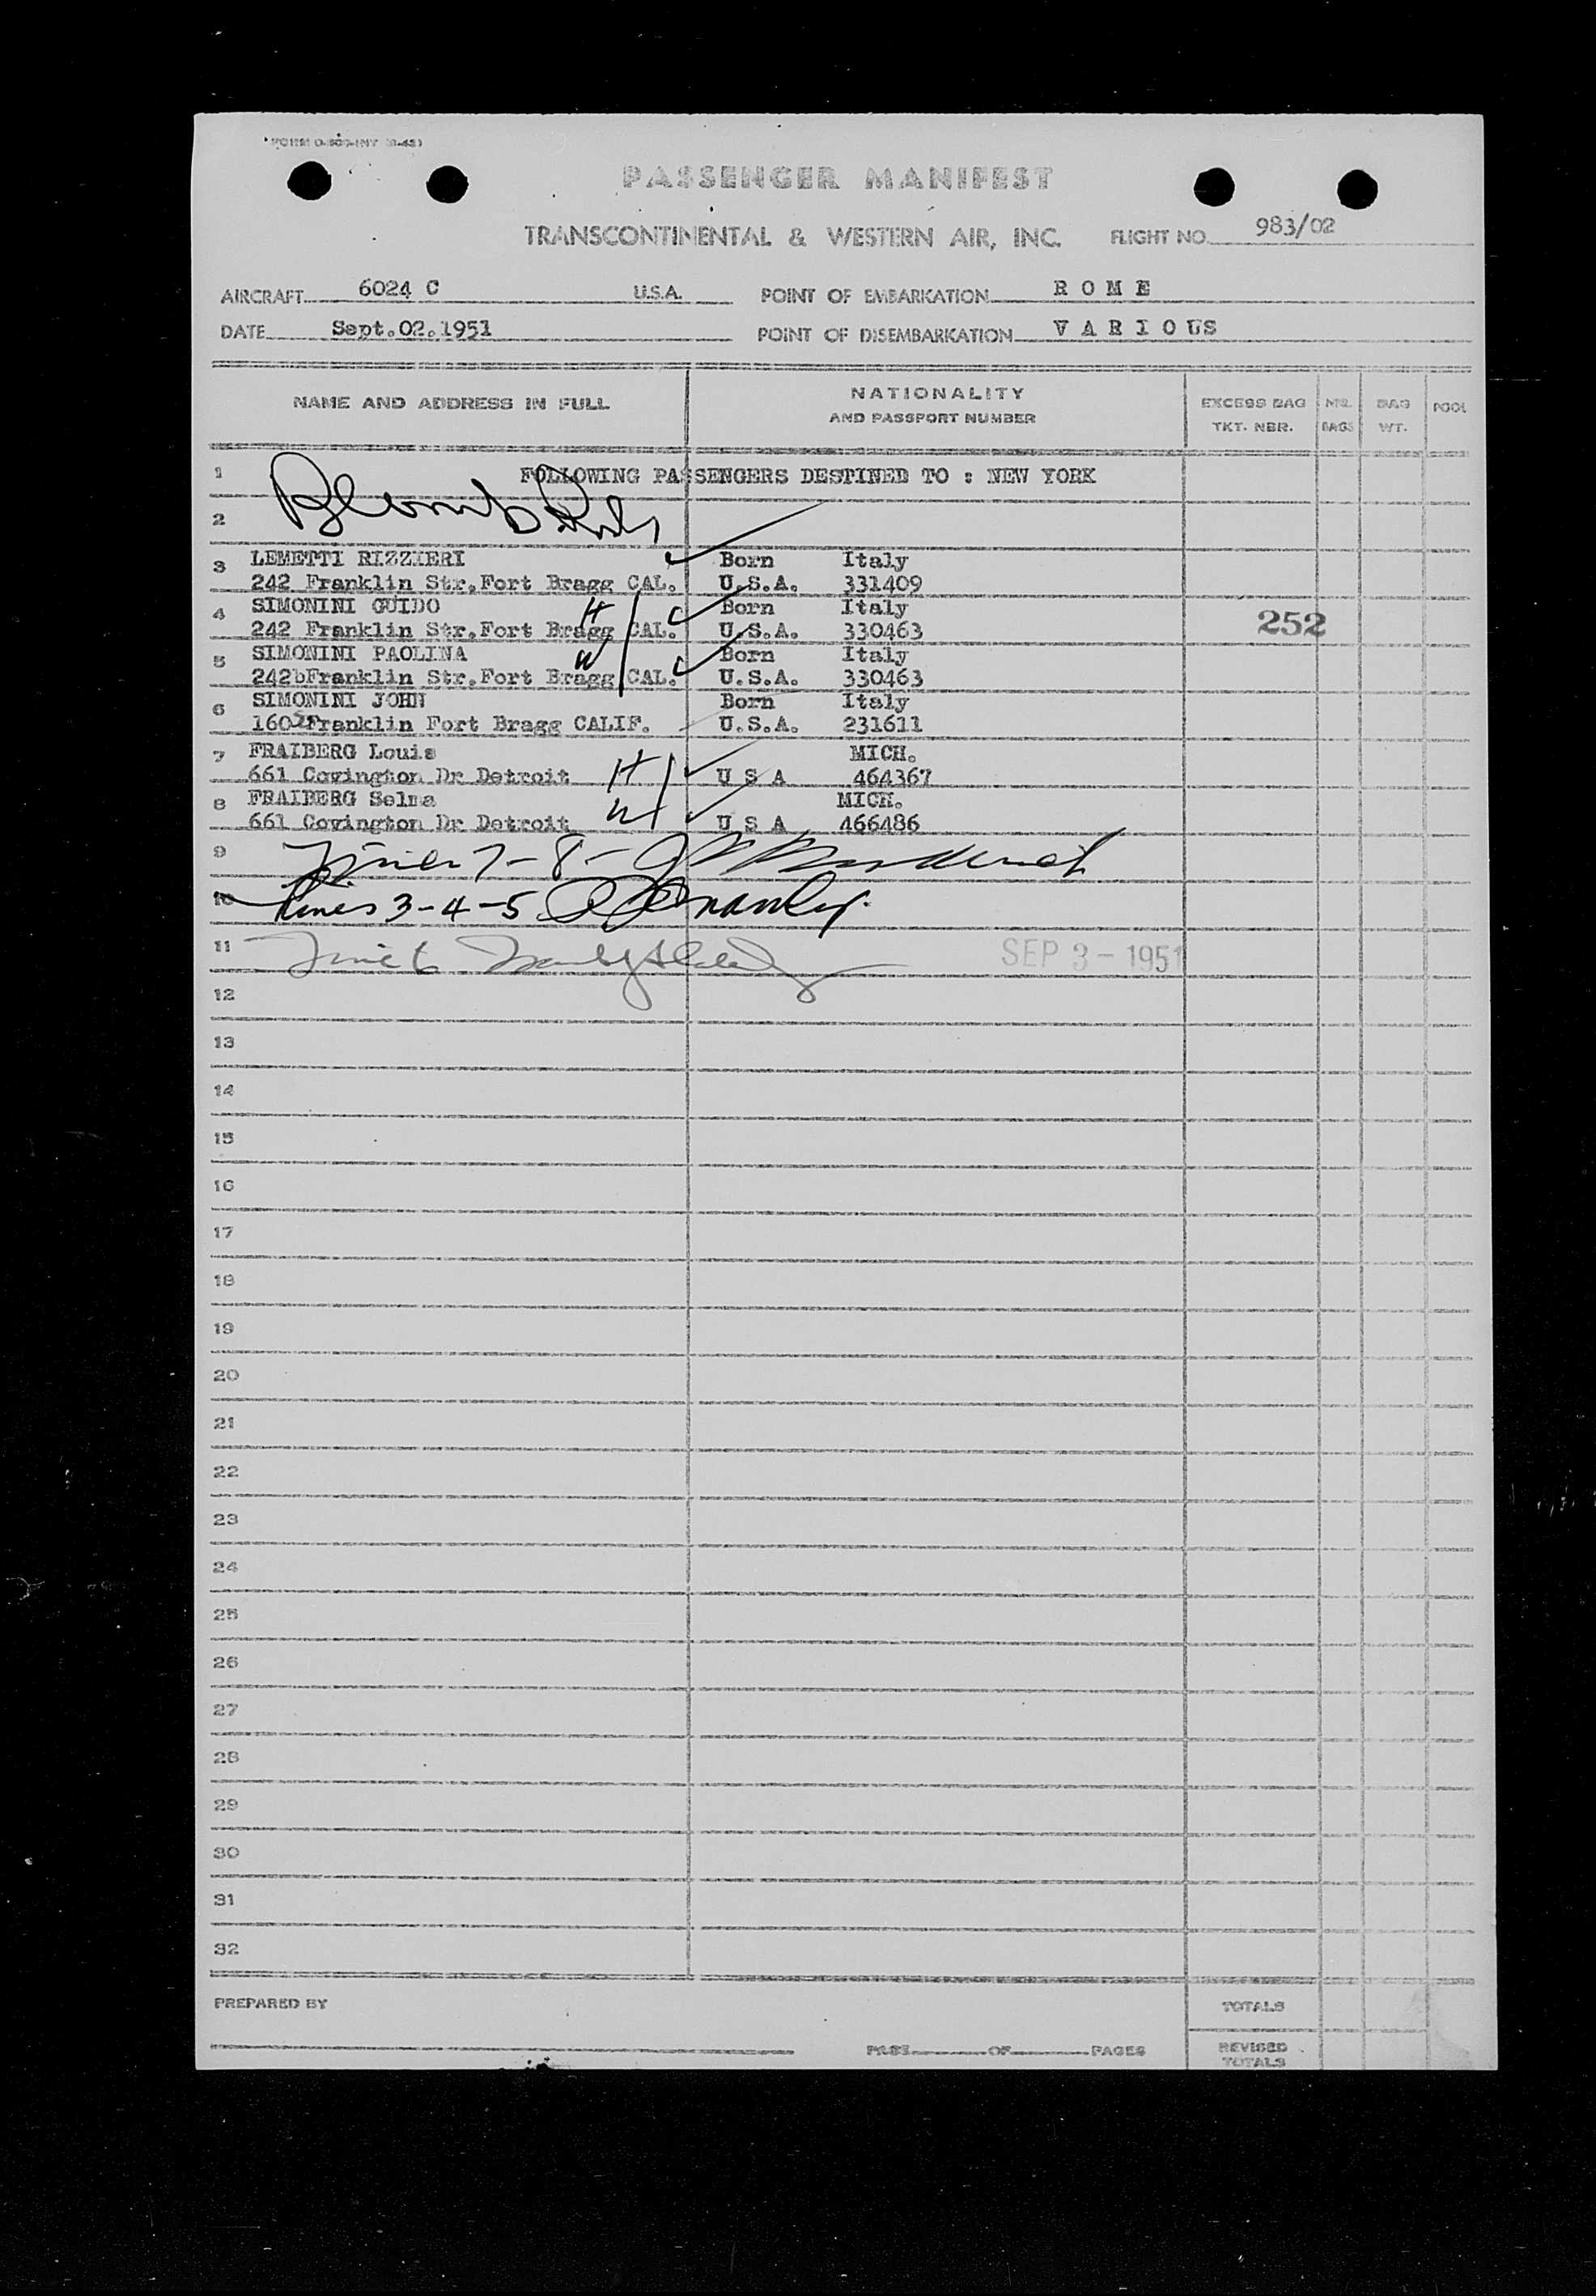 PASSENGER MANIFEST
TRANSCONTINENTAL & WESTERN AIR, INC. FLIGHT NO. 983/02
AIRCRAFT 6024 C U.S.A. POINT OF EMBARKATION R O M E
DATE Sept.02.1951 POINT OF DISEMBARKATION V A R I O US
NAME AND ADDRESS IN FULL NATIONALITY AND PASSPORT NUMBER EXCESS BAG TKT. NBR. NR. BAGS BAG WT. POOL
1 FOLLOWING PASSENGERS DESTINED TO : NEW YORK
2
3 LEMETTI RIZZIERI Born Italy
242 Franklin Str.Fort Bragg CAL. U.S.A. 331409
4 SIMONINI GUIDO H Born Italy
242 Franklin Str.Fort Bragg CAL. U.S.A. 330463 252
5 SIMONINI PAOLINA W Born Italy
242bFranklin Str.Fort Bragg CAL. U.S.A. 330463
6 SIMONINI JOHN Born Italy
160 Franklin Fort Bragg CALIF. U.S.A. 231611
7 FRAIBERG Louis MICH.
661 Covington Dr Detroit H U S A 464367
8 FRAIBERG Selma MICH.
661 Covington Dr Detroit W U S A 466486
9 Lines 7-8-
10 Lines 3-4-5
11 Line 6 SEP 3 - 1951
12
13
14
15
16
17
18
19
20
21
22
23
24
25
26
27
28
29
30
31
32
PREPARED BY TOTALS
PAGE OF PAGES REVISED TOTALS